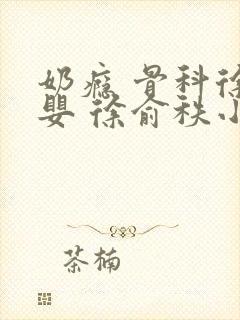 奶瘾 骨科徐
婴 徐俞秩小
茶楠